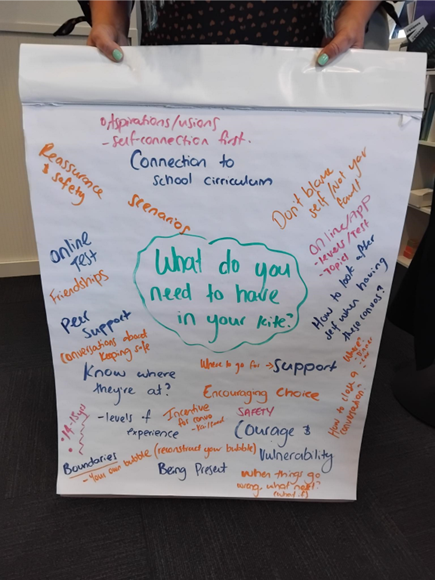 Aspirations/visions
- self-connection first.
Connection to
school cirriculum
Reassurance
& safety
scenarios
Don't blame
self / not your
fault!
Online/App
- levels/test
- Topics
Online
Test
Friendships
What do you
need to have
in your kite?
How to look after
self when having
these convos?
Peer
Support
Conversations about
keeping safe
Where to go for → Support
Know where
they're at?
Encouraging Choice
- levels of
experience
Incentive
for convo
SAFETY
Courage &
Vulnerability
How to close a
conversation?
Boundaries
- Your own bubble (reconstruct your bubble)
Being Present
When things go
wrong, what next?